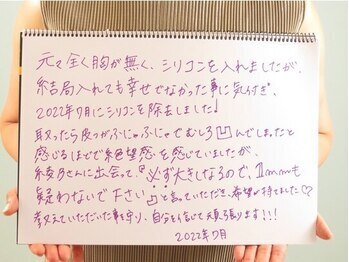 元々全く胸が無く、シリコンを入れましたが、
結局入れても幸せでなかった事に気付き、
2022年7月にシリコンを除去しました!
取ったら皮がふにゃふにゃでむしろ凹んでしまったと
感じるほどで絶望感を感じていましたが、
さんに出会って『必ず大きくなるので、1mmも
疑わないで下さい』と言っていただき、希望が持てました♡
教えていただいた事を守り、自分を信じて頑張ります!!!
2022年7月